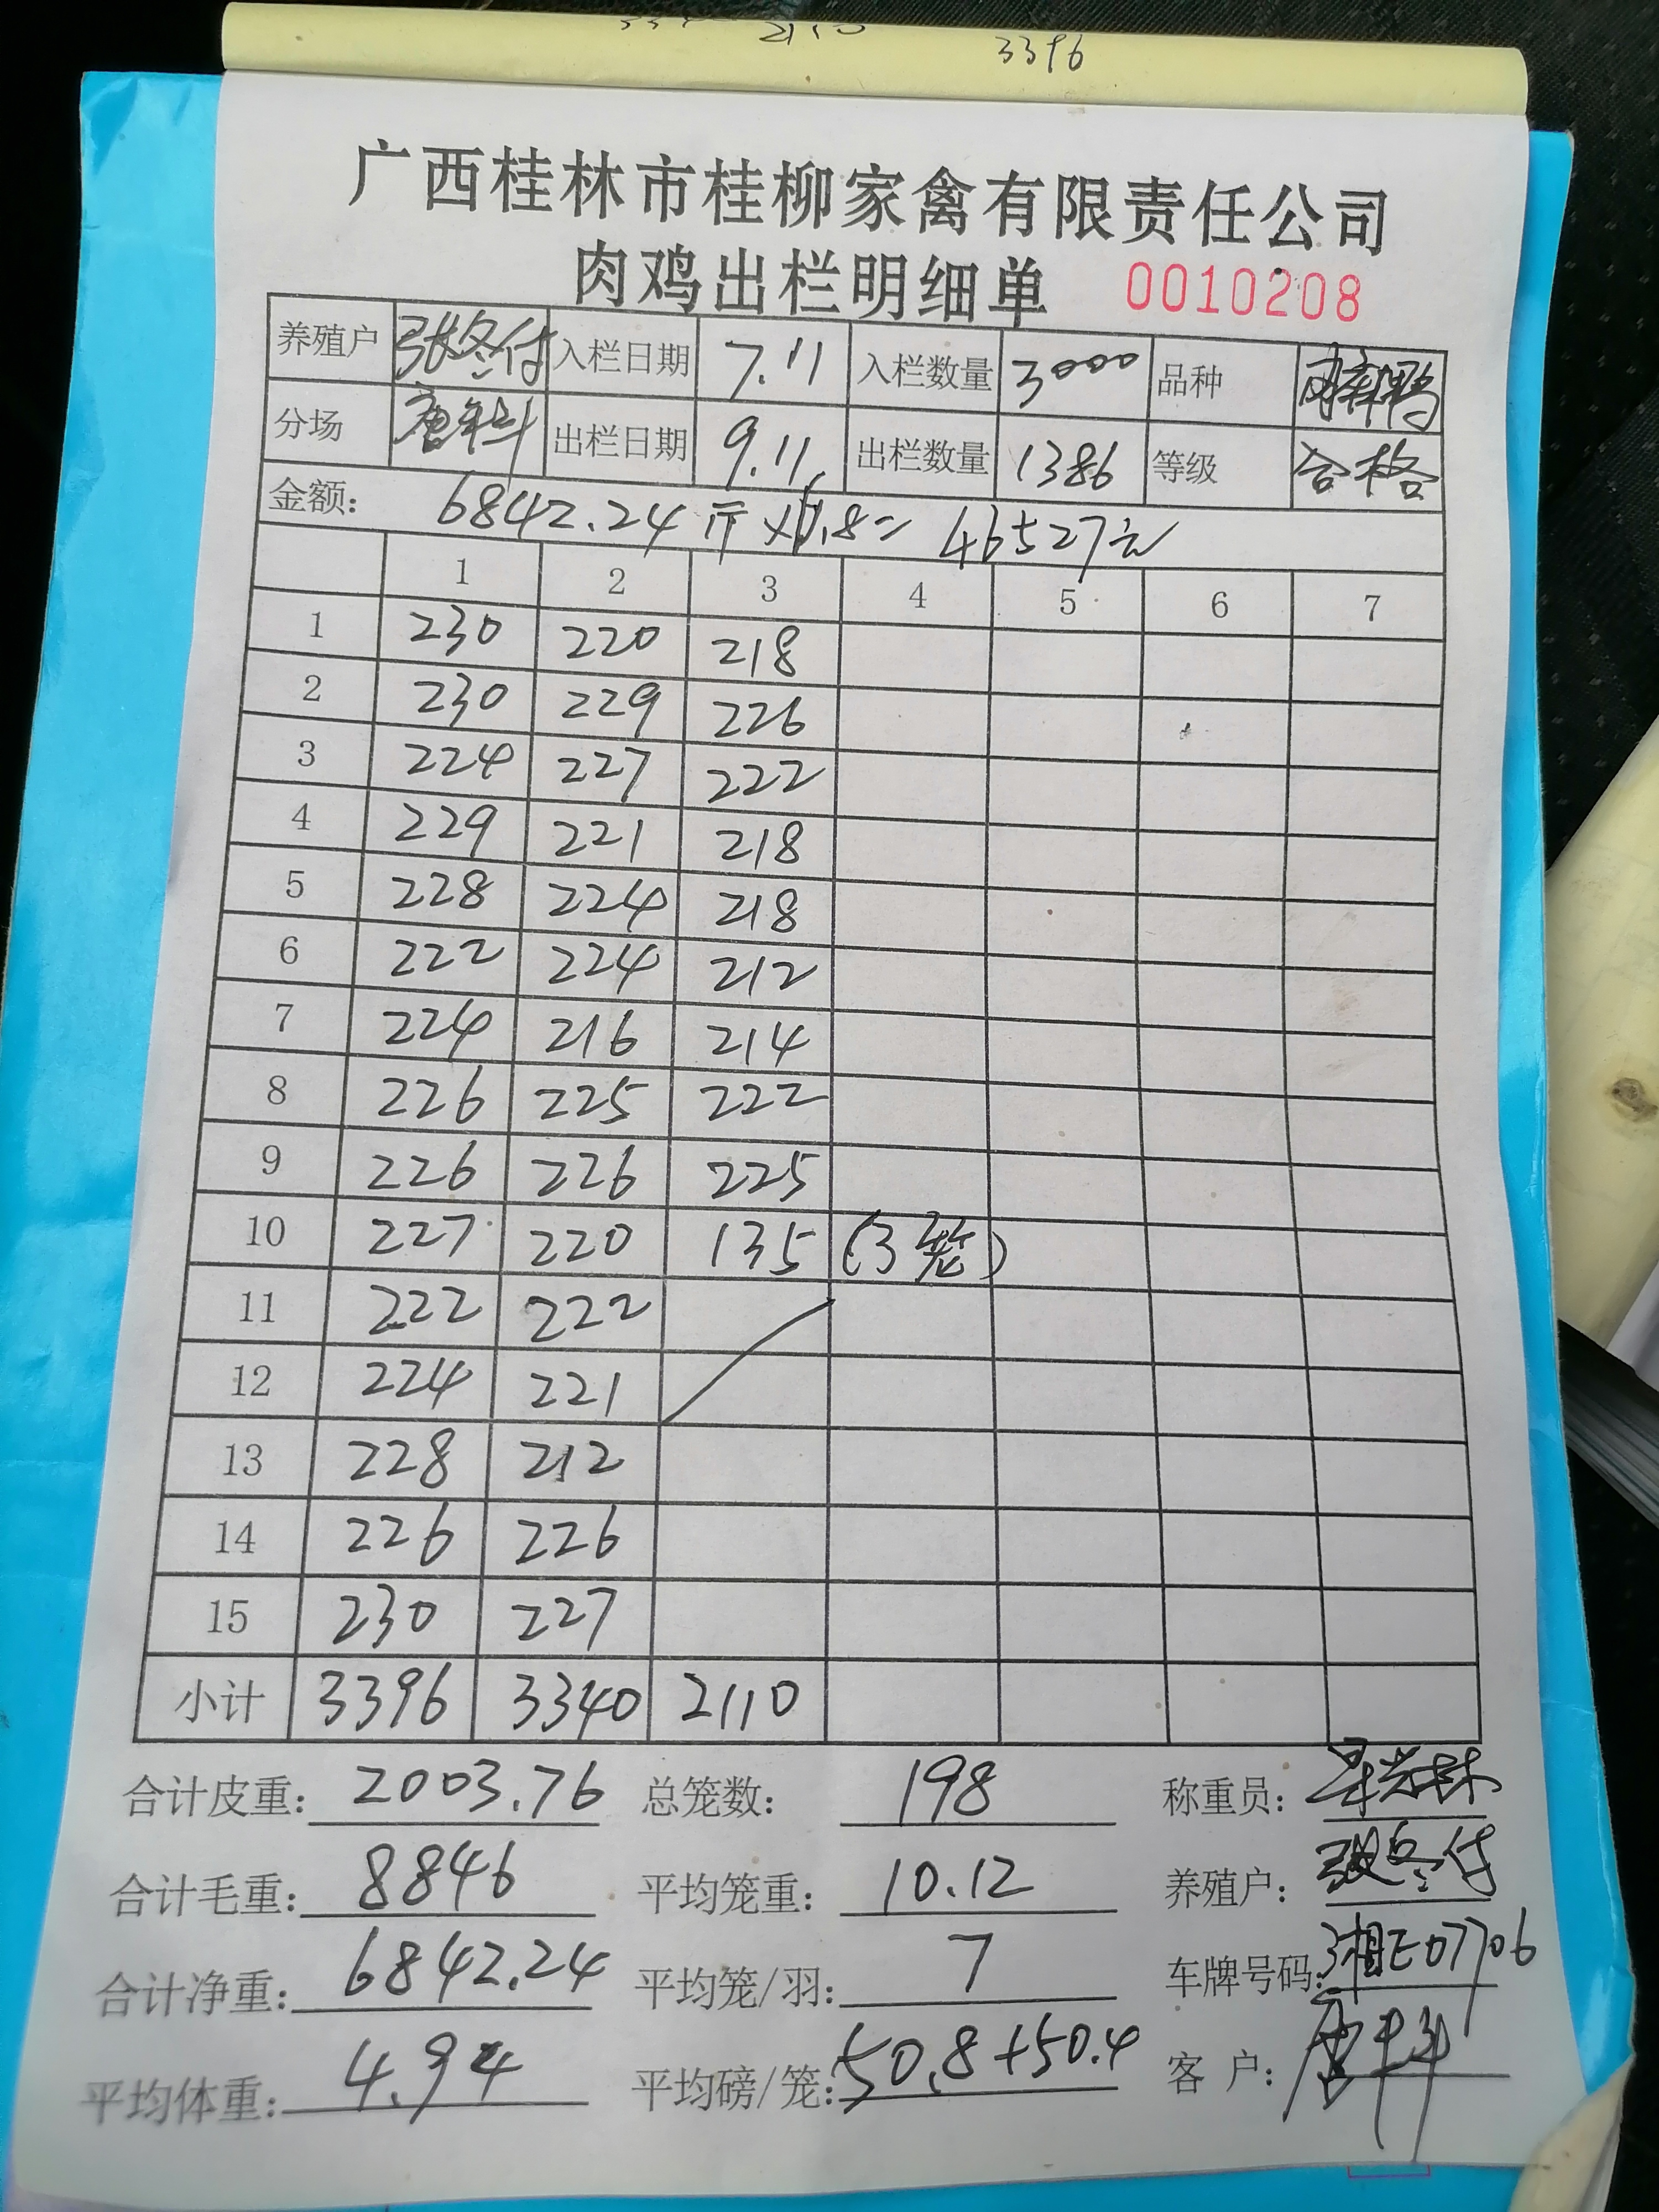 3396
广西桂林市桂柳家禽有限责任公司
肉鸡出栏明细单 0010208
养殖户 张冬付 入栏日期 7.11 入栏数量 3000 品种
分场 出栏日期 9.11, 出栏数量 1386 等级 合格
金额: 6842.24斤 = 46527元
1 2 3 4 5 6 7
1 230 220 218
2 230 229 226
3 224 227 222
4 229 221 218
5 228 224 218
6 222 224 212
7 224 216 214
8 226 225 222
9 226 226 225
10 227 220 135 (3笼)
11 222 222
12 224 221
13 228 212
14 226 226
15 230 227
小计 3396 3340 2110
合计皮重: 2003.76 总笼数: 198 称重员:
合计毛重: 8846 平均笼重: 10.12 养殖户: 张冬付
合计净重: 6842.24 平均笼/羽: 7 车牌号码: 湘E07706
平均体重: 4.94 平均磅/笼: 50.8+50.4 客户: